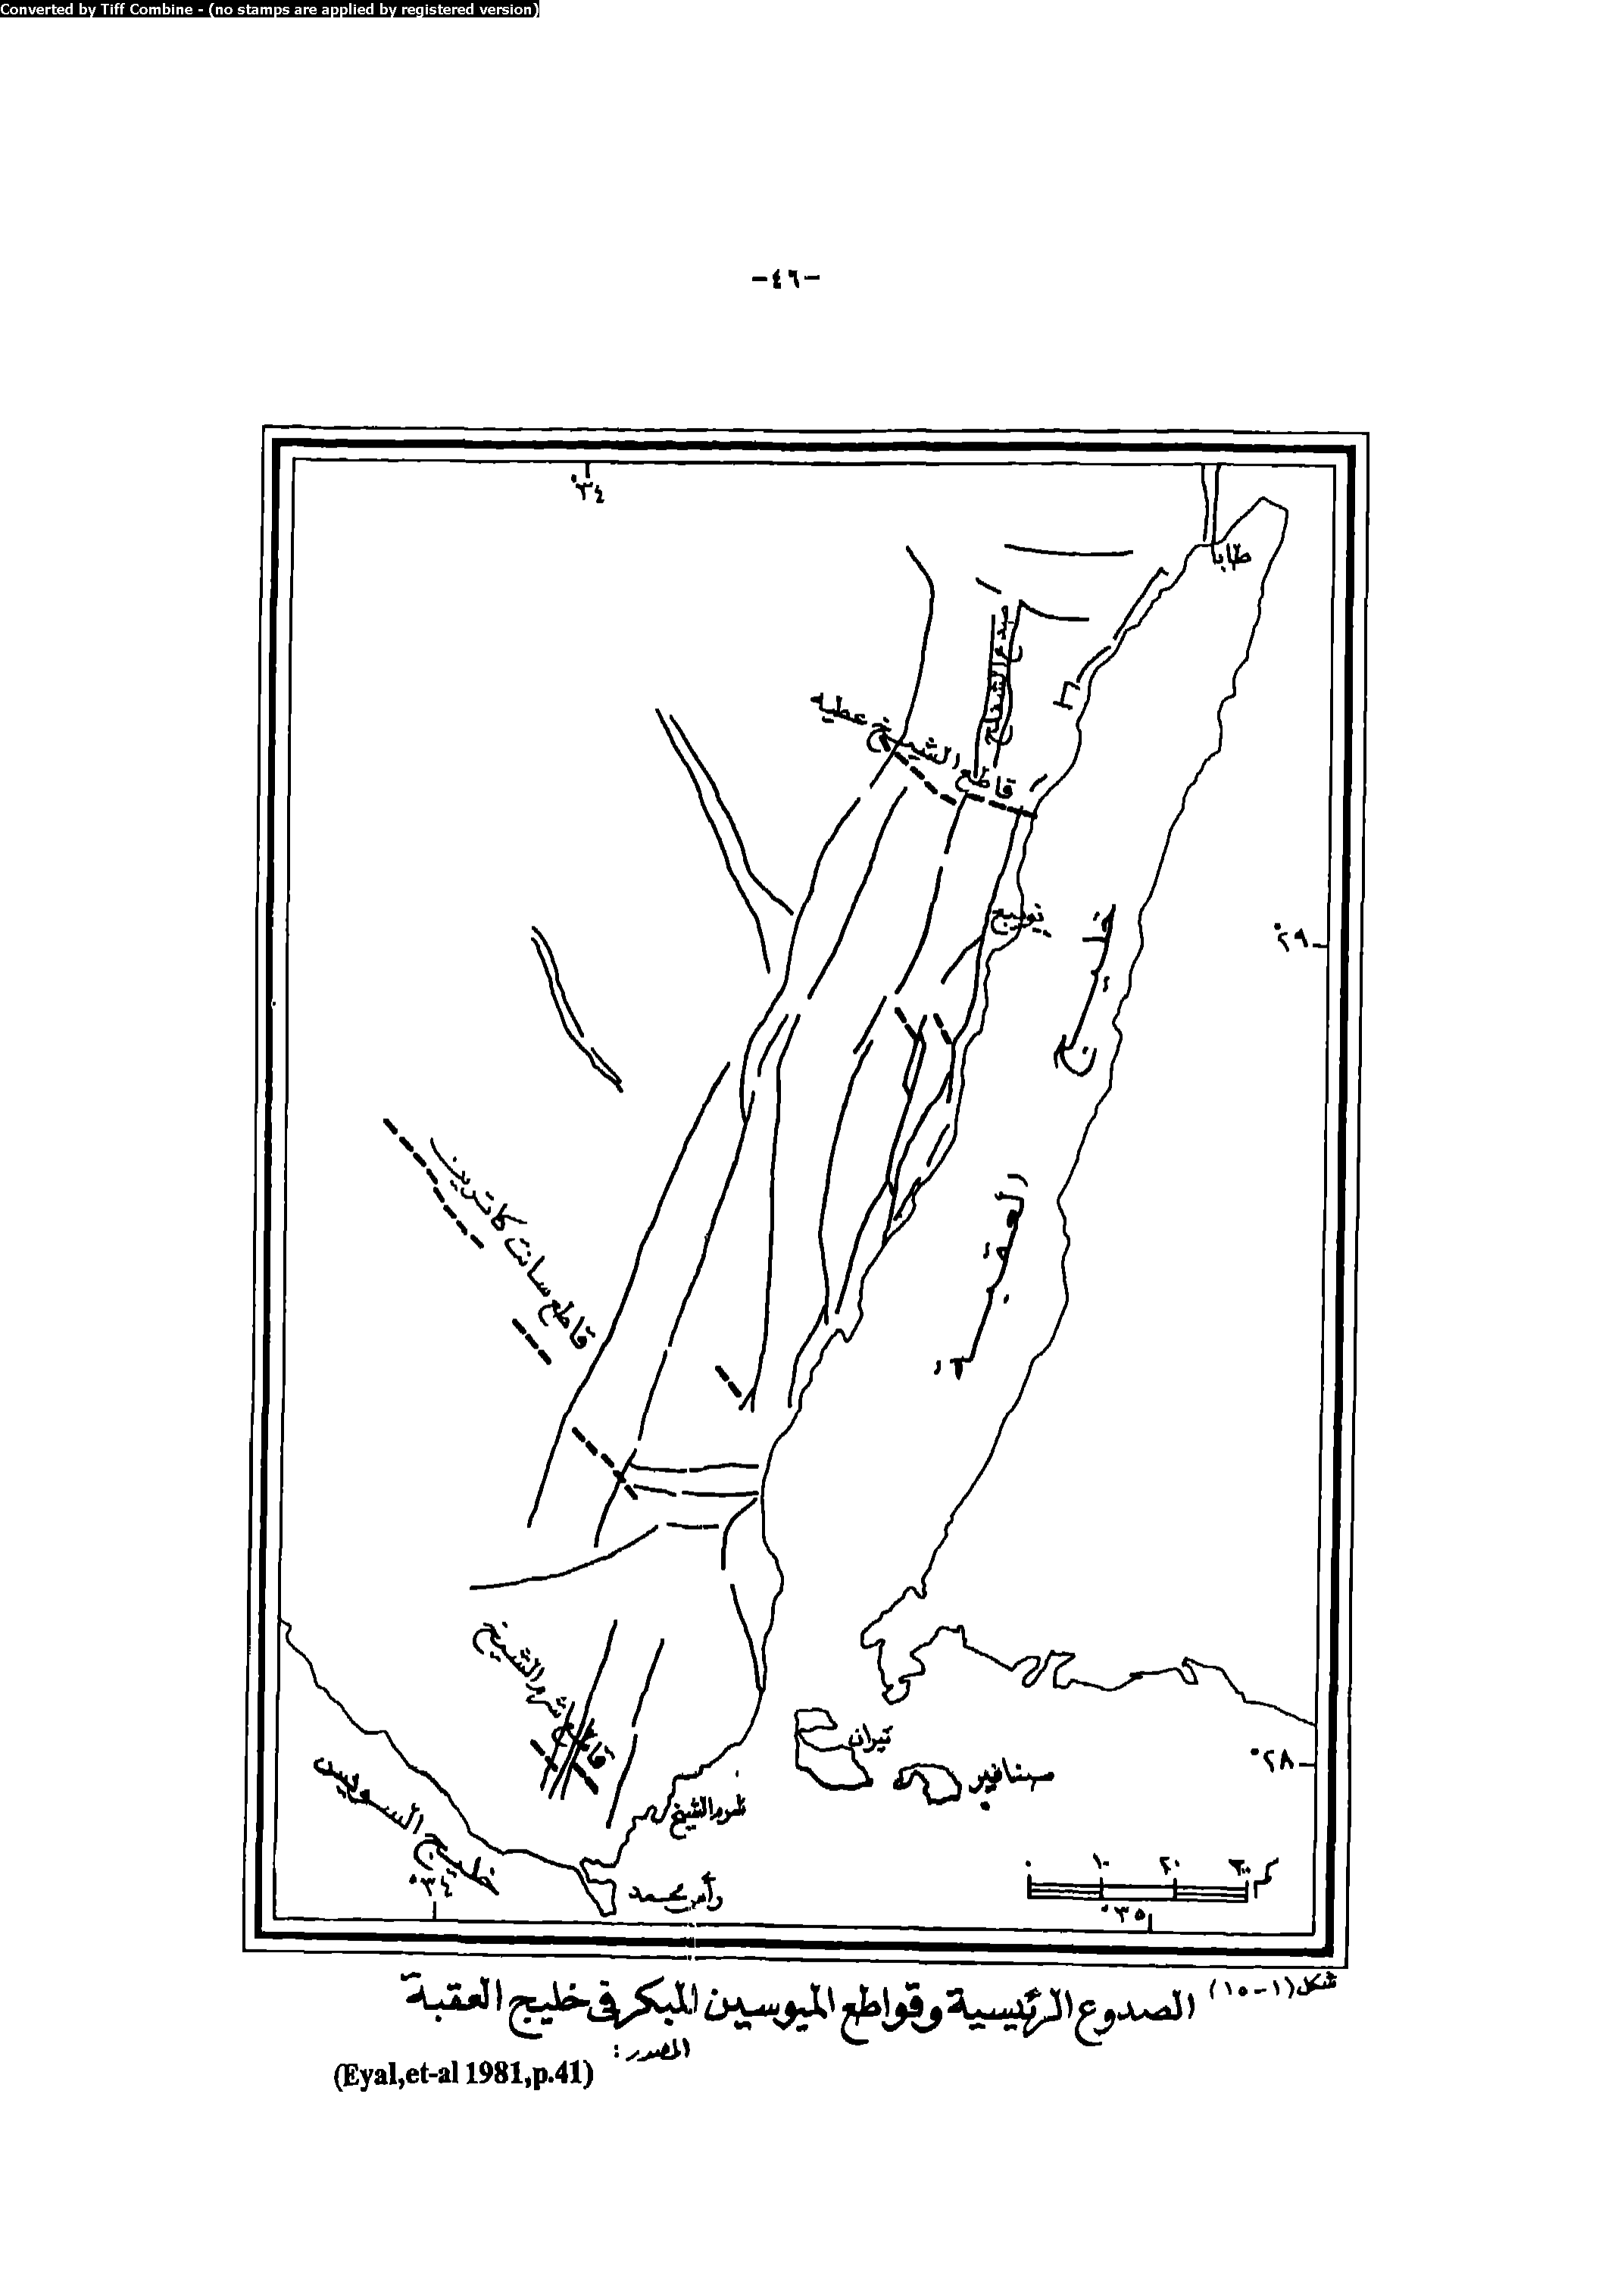 Converted by Tiff Combine - (no stamps are applied by registered version)
-٤٦-
°٣٤
طابا
صدع الشعلح
قاطع الشيخ عطيه
نويبع
°٢٩
خليج
العقبة
قاطع سانت كاترين
قاطع شرم الشيخ
تيران
صنافير
°٢٨
شرم الشيخ
خليج السويس
رأس محمد
°٣٤
٠ ١٠ ٢٠ ٣٠ كم
°٣٥
شكل (١-١٥) الصدوع الرئيسية وقواطع الميوسين المبكر فى خليج العقبة
المصدر :
(Eyal,et-al 1981,p.41)